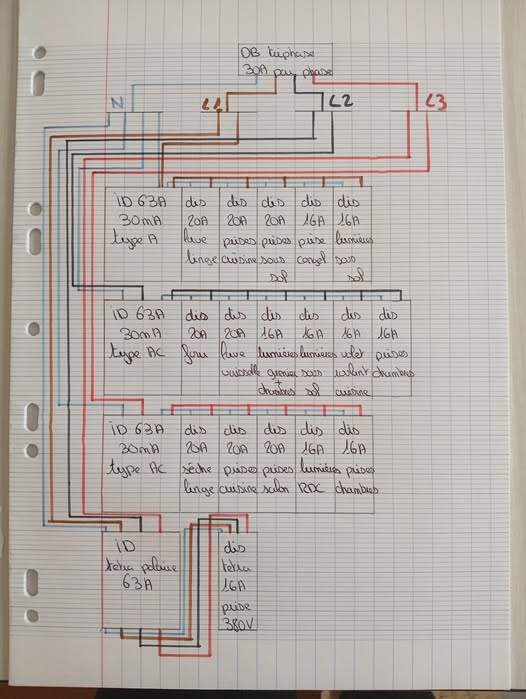 DB triphasé
30A par phase
N
L1
L2
L3
iD 63A
30mA
type A
dis
20A
lave
linge
dis
20A
prises
cuisine
dis
20A
prises
sous
sol
dis
16A
prise
congel
dis
16A
lumières
sous
sol
iD 63A
30mA
type AC
dis
20A
four
dis
20A
lave
vaisselle
dis
16A
lumières
grenier
+
chambres
dis
16A
lumières
sous
sol
dis
16A
volet
roulant
cuisine
dis
16A
prises
chambres
iD 63A
30mA
type AC
dis
20A
sèche
linge
dis
20A
prises
cuisine
dis
20A
prises
salon
dis
16A
lumières
RDC
dis
16A
prises
chambres
iD
tetra polaire
63A
dis
tetra
16A
prise
380V